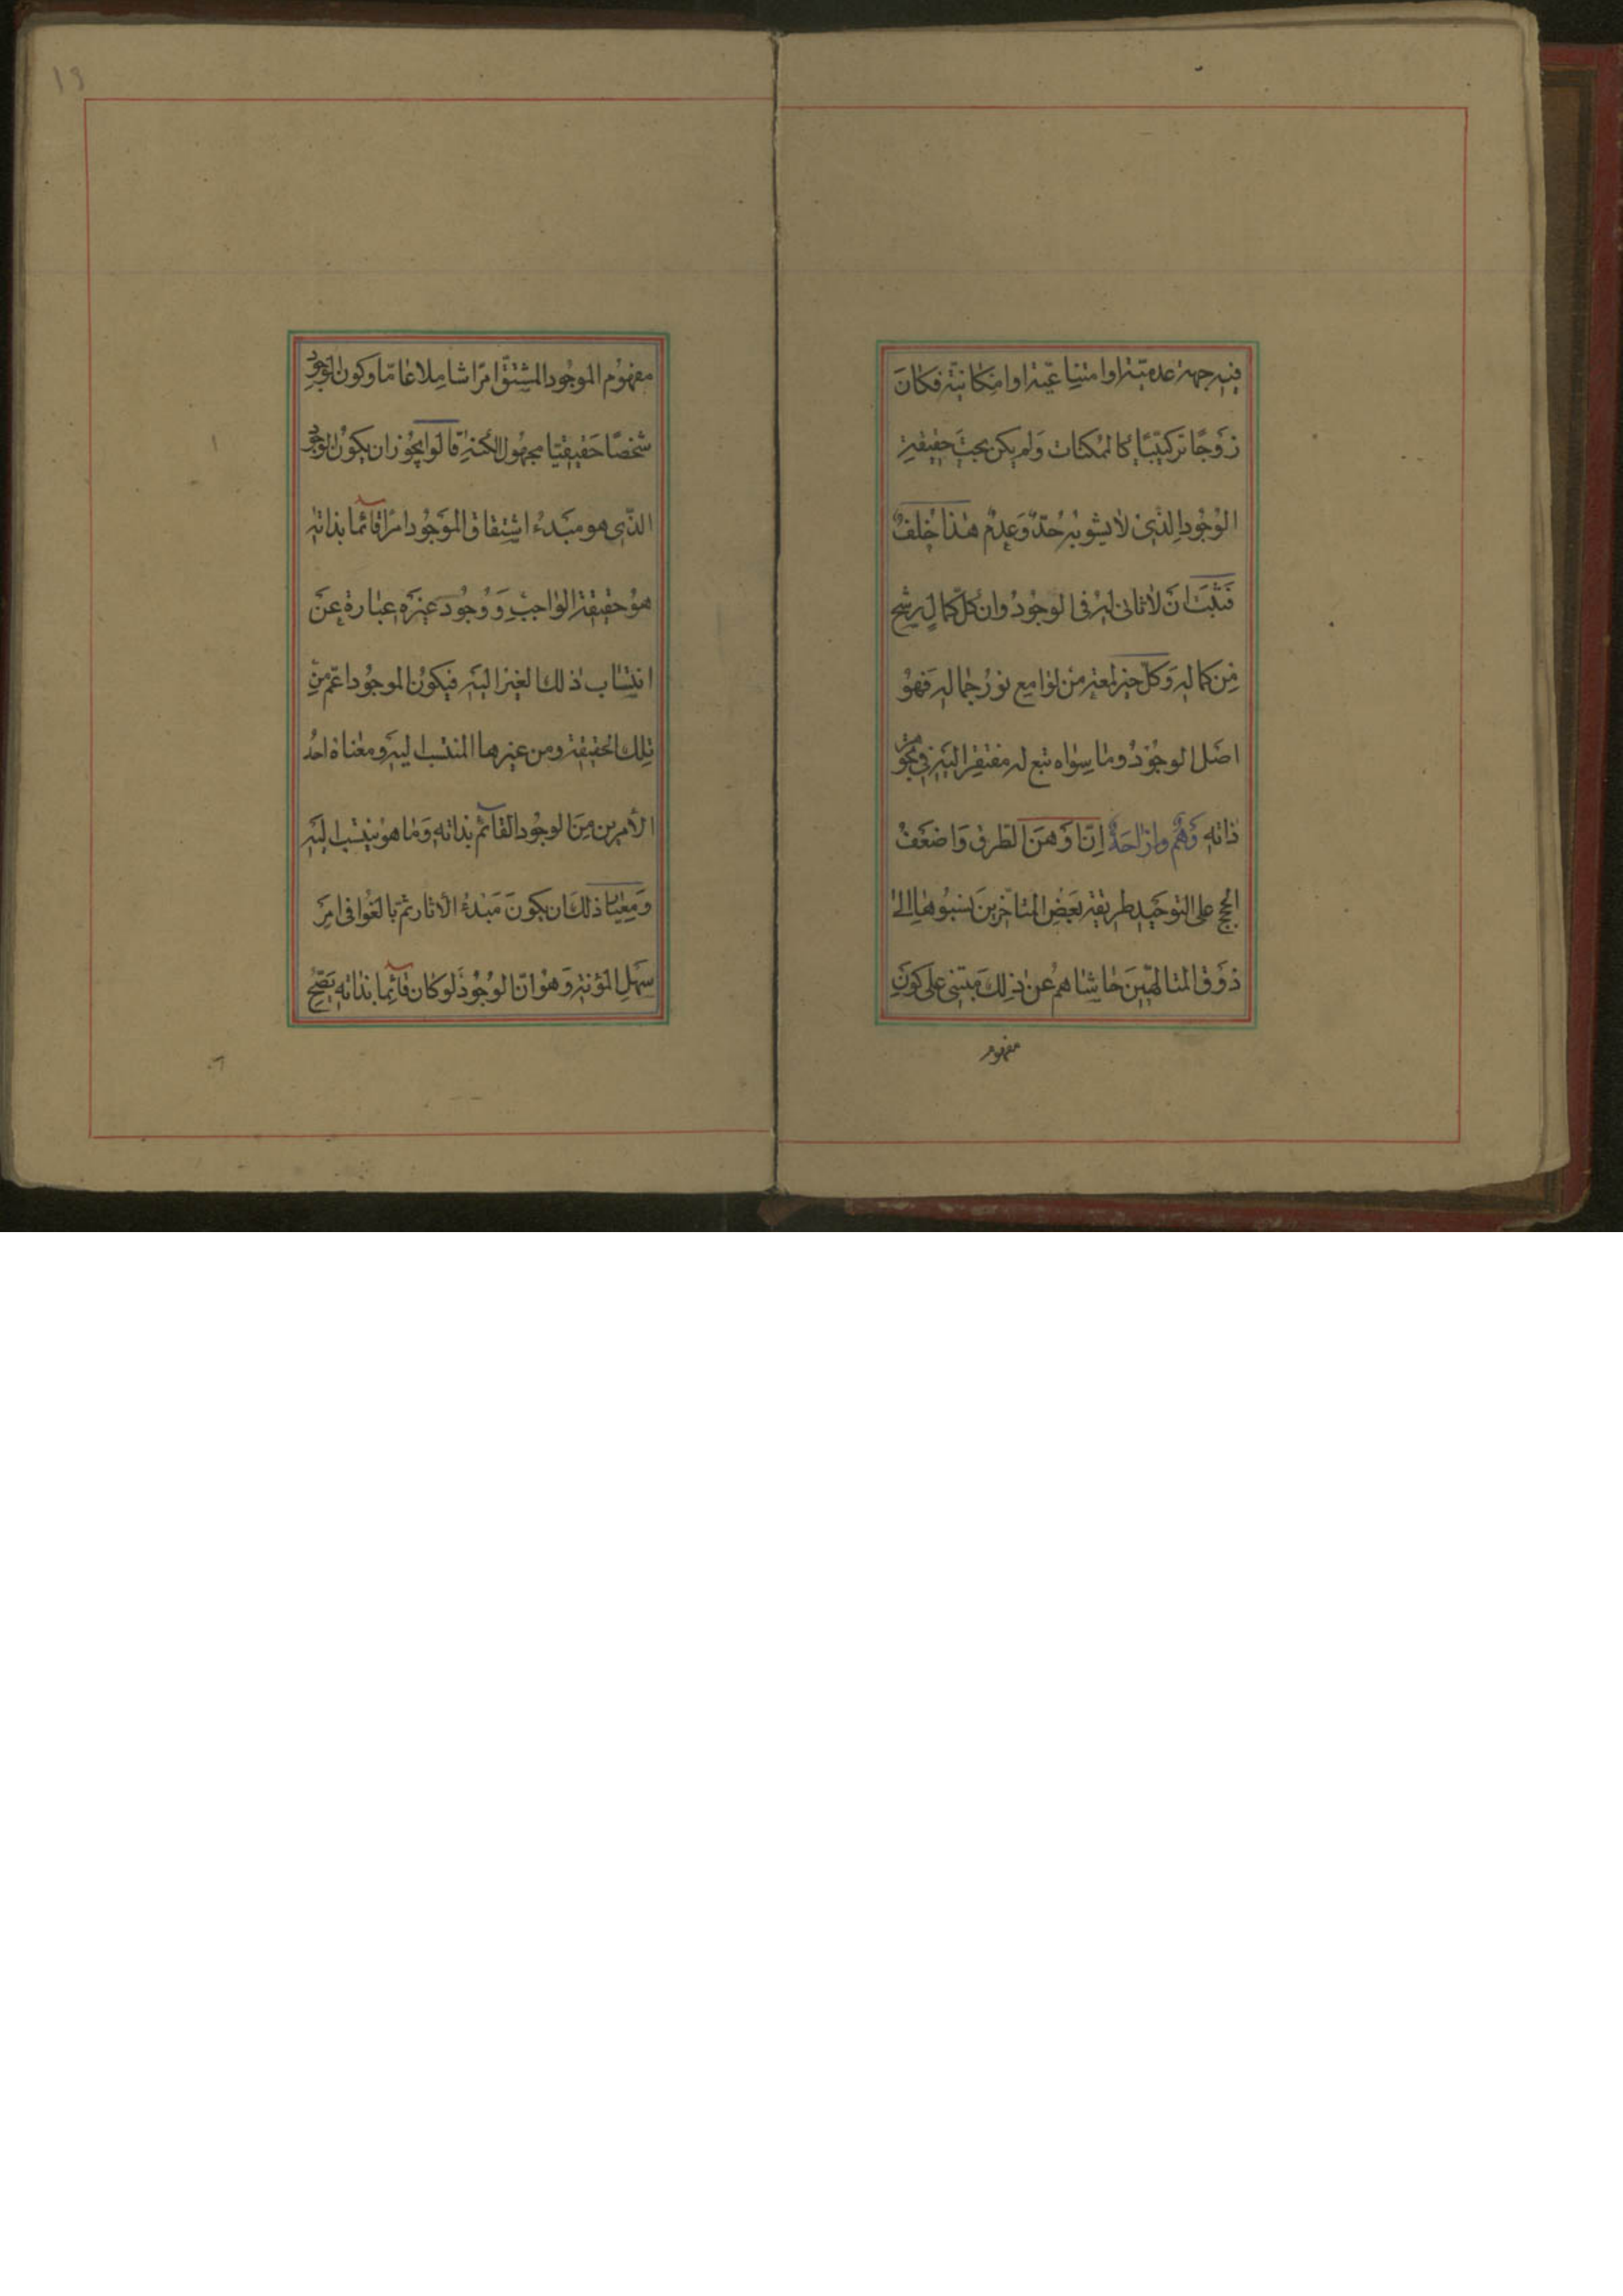 فيه جهة عدميّة او امتناعيّة او امكانيّة فكان
زَوجًا تركيبيًّا كالممكنات وَلم يكن بحتَ حقيقةِ
الوُجُود الّذى لا يشوبُه حُدٌّ وَعدمٌ هذا خلفٌ
فَثَبَتَ انَ لا ثانى له فى الوجُودُ وان كلّ كمالٍ رشح
مِن كماله وَكلّ خير لمعة من لوامع نورُ جماله فهوُ
اصَل الوجُودُ وما سِواه تبع له مفتقِر اليَه فى تجوهر
ذاته وَهْمٌ وازاحَةٌ اِنّ اَوهَنَ الطرق وَاضعَفْ
الحجج على التوحَيد طريقة بَعضُ المتأخّرينَ نسَبوُها الى
ذوَق المتالهّينَ حاشاهمُ عن ذلِكَ مبتنى على كونَ
مفهوم
مفهوُم الموجُود المشتقّ امرًا شاملا عامّا وكون الوجُودِ
شخصًا حَقيقيّا مجهُول الكنه قالوا يجُوز ان يكوُن الوجُود
الذّى هو مبَدءُ اشتقاق الموَجُود امرًا قآئما بذاته
هوُ حقيقة الواجبِ وَ وُجُود غيرَه عبارة عَن
انتسَاب ذلك الغير اليَه فيكوُن الموجُود اعمّ مِنّ
تلِك الحقيقة ومن غيرها المنتسب اليه وَمعناه احدُ
الأمرين مِنَ الوجُود القآئمُ بذاته وَما هوُ ينتسَب اليَه
وَمعيَار ذلكَ ان يكوَن مَبَدءُ الآثار ثمّ بالغُوا فى امرَ
سَهلِ المؤنة وَهوُ انّ الوُجُودَ لوكان قآئما بذاته يَصّحُ